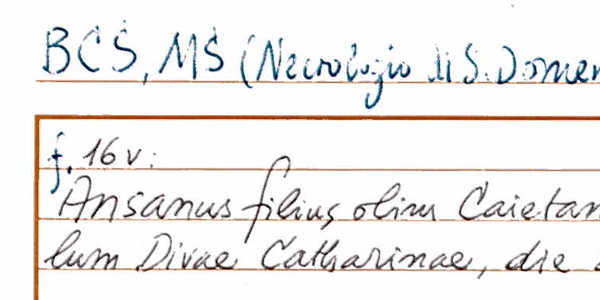 BCS, MS (Necrologio di S. Domen
f. 16 v:
Ansanus filius olim Caietan
lum Divae Catharinae, die